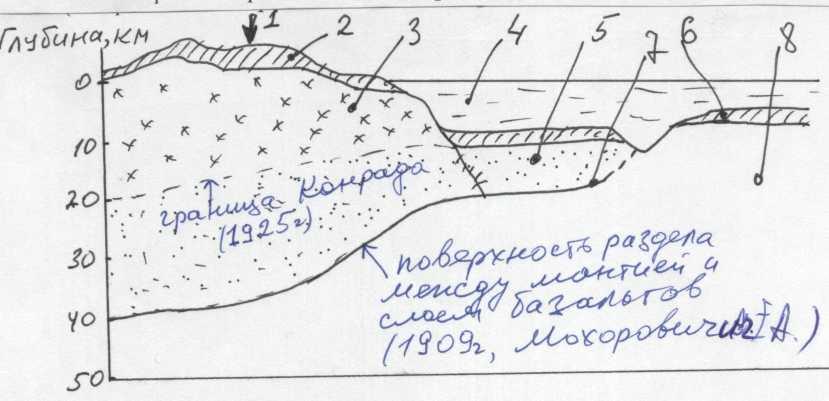 Глубина, км
1 2 3 4 5 7 6 8
0
10
20
30
40
50
граница Конрада
(1925г.)
поверхность раздела
между мантией и
слоем базальтов
(1909г, Мохоровичич А.)